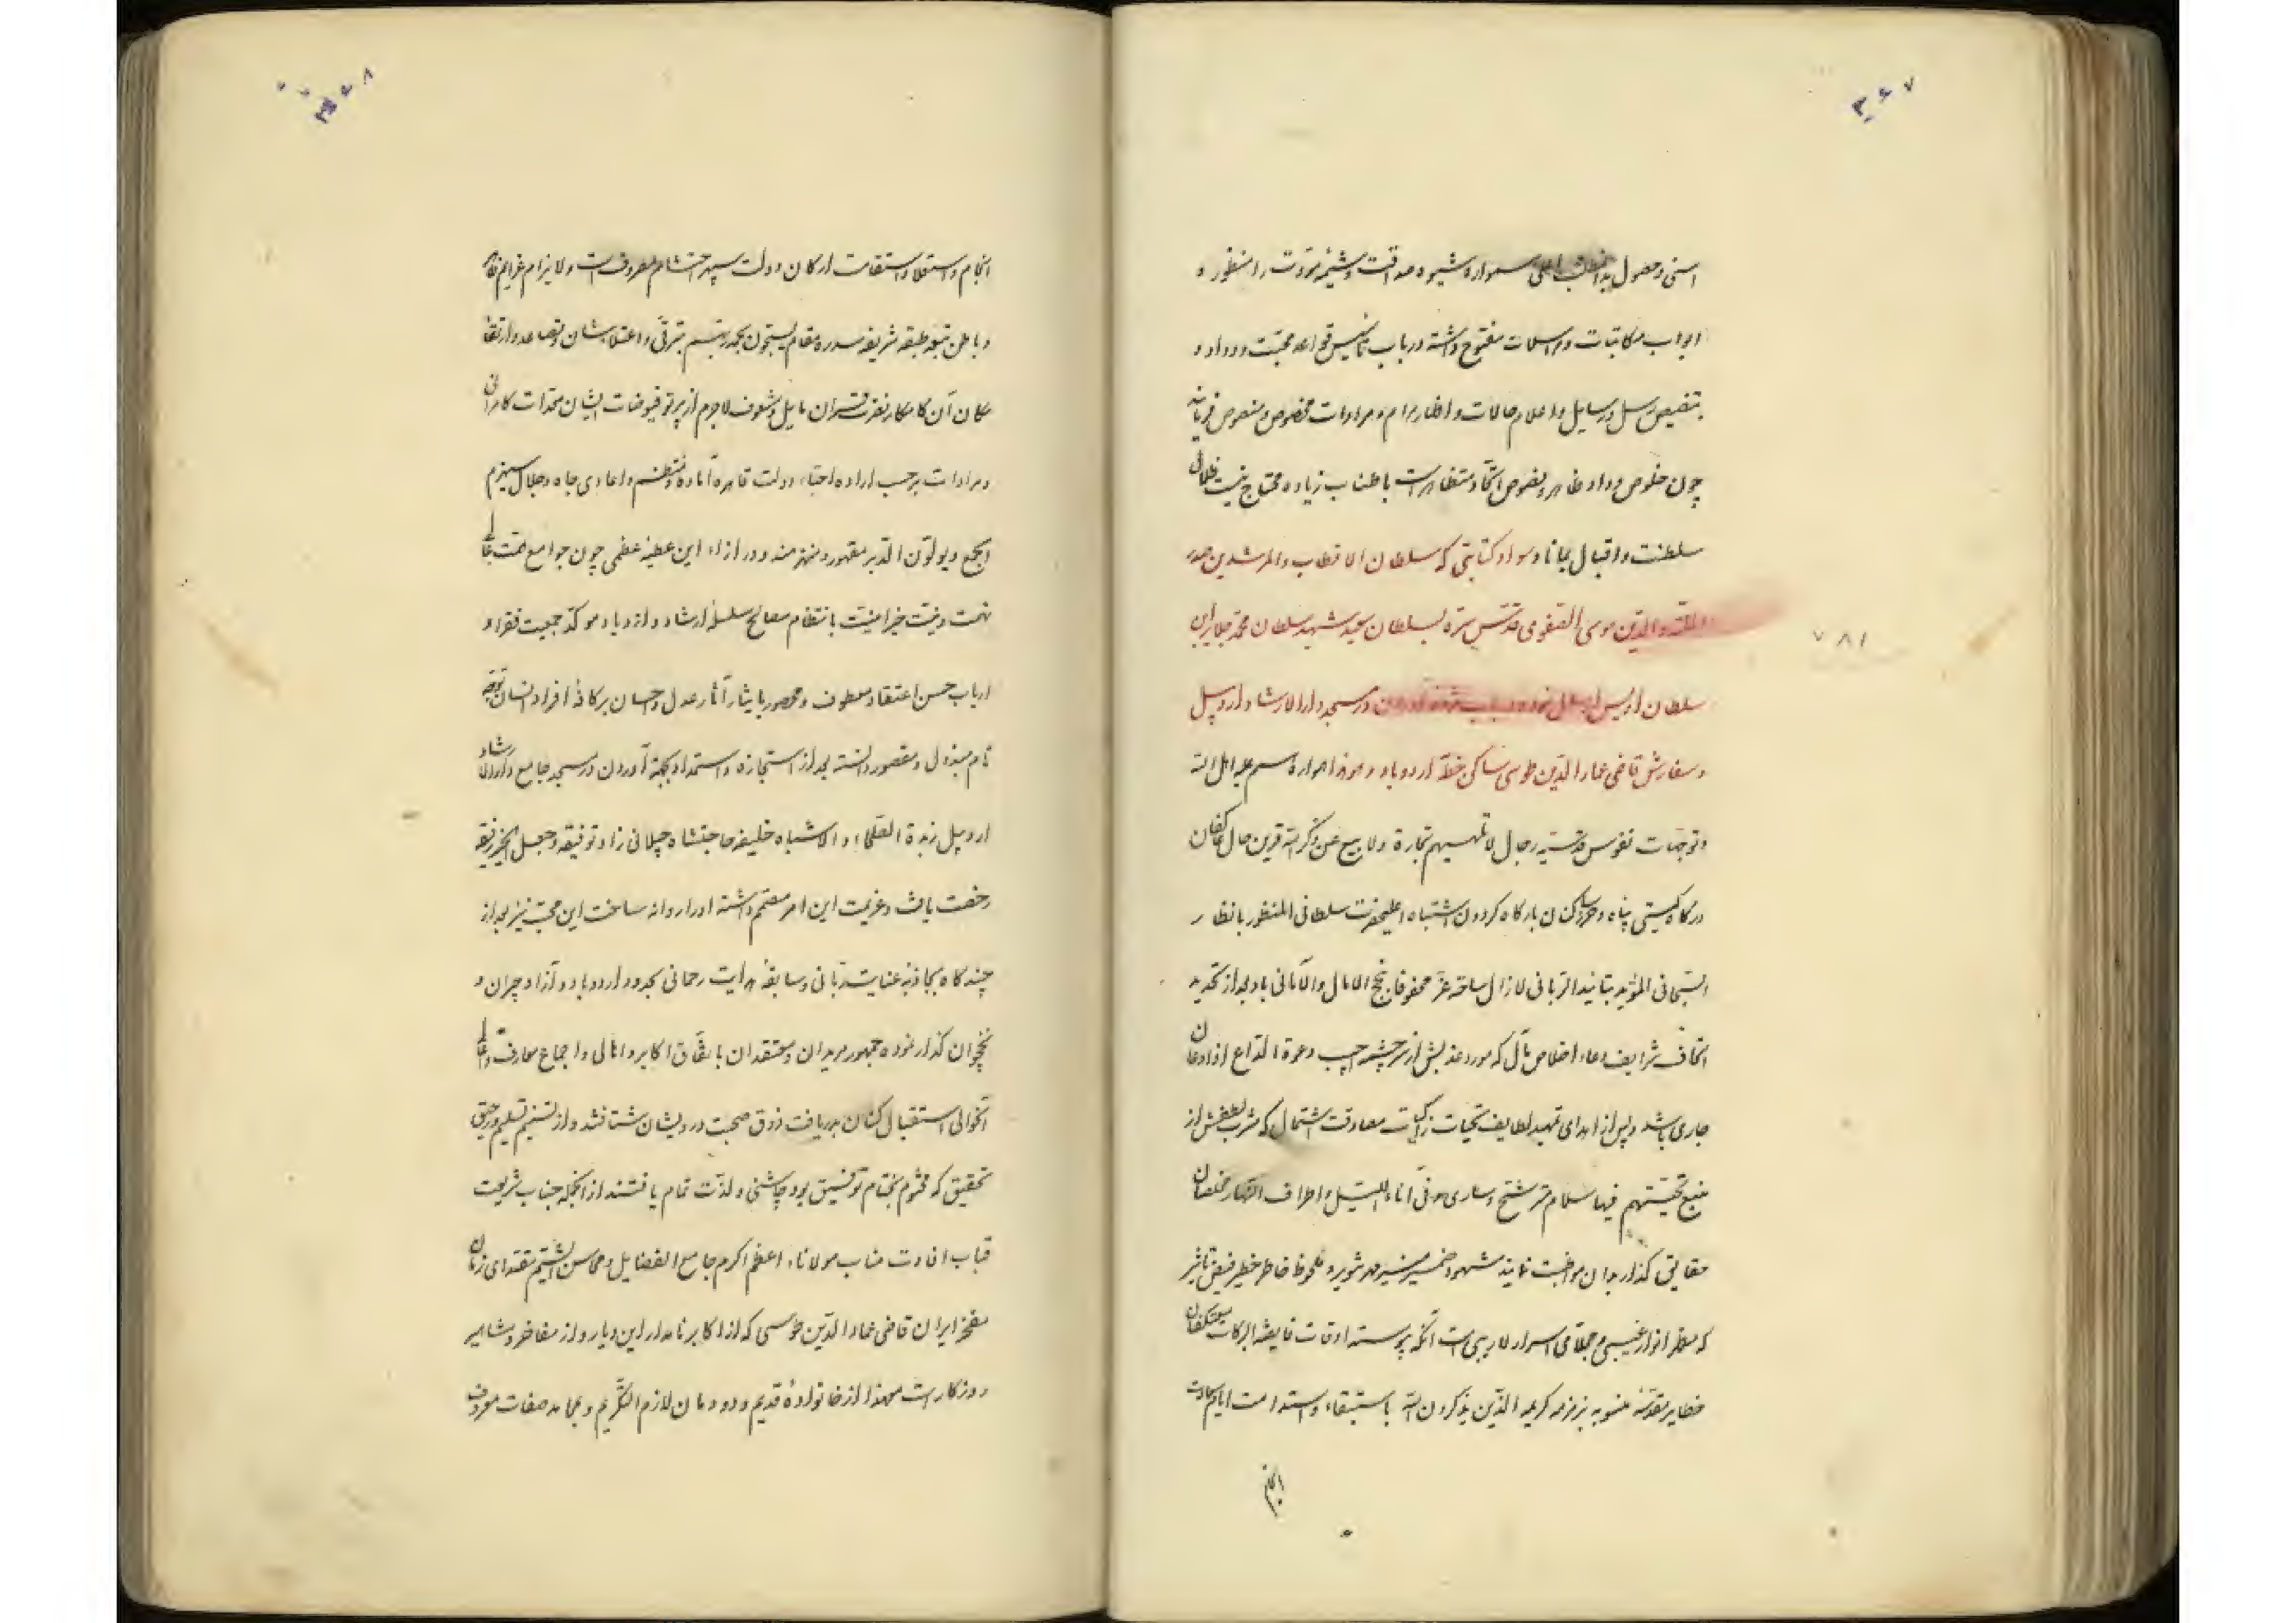 ۳۶۷
اسنی و حصول بدان مطلب اعلی همواره شیوه صداقت و شیمهٔ مروّت را منظور و
ابواب مکاتبات و مراسلات مفتوح داشته در باب تاسیس قواعد محبّت و وداد و
بتخصیص رسل و رسایل و اعلام حالات و اظهار مرام و مرادات مخصوص و منصوص فرمایند
چون خلوص وداد ظاهر و نصوص اتّحاد متظاهر است باطناب زیاده محتاج نیست ظلال
سلطنت و اقبال بماناد سواد کتابتی که سلطان الاقطاب و المرشدین صدر
الملّة و الدّین موسی الصّفوی قدّس سرّه بسلطان سعید شهید سلطان محمد جلایر ابن
سلطان اویس ارسال نموده در باب آوردن در مسجد دارالارشاد اردبیل
و سفارش قاضی عمادالدّین طوسی ساکن خطّهٔ اردوباد هموار همواره اهل اللّه
و توجّهات نفوس قدسیّه رجال لا تلهیهم تجارة و لا بیع عن ذکر اللّه قرین حال عاکفان
درگاه گیتی پناه و ساکنان بارگاه گردون اشتباه اعلیحضرت سلطانی المنظور بانظار
السّبحانی المؤید بتائید الرّبانی لازال ساحة عزّه محفوفا بنجح الامال و الامانی باد بعد از تجدید
اتحاف شرایف دعاء اخلاص مآل که مورد عذبش از سرچشمه اجیب دعوة الدّاع اذا دعان
جاری باشد و پس از اهدای تمهید لطایف تحیّات زاکیات مصادقت اشتمال که مشرب لطفش از
منبع تحیّتهم فیها سلام مترشّح و ساری و فی آناء اللّیل و اطراف النّهار مخلصان
حقایق گذار بدان مواظبت نمایند مشهود ضمیر منیر مهر تنویر و ملحوظ خاطر خطیر فیض تاثیر
که مظهر انوار غیبی و مجلای اسرار لاریبی است آنکه پیوسته اوقات فایضة البرکات معتکفان
خطایر مقدّسه منسوبه بزمزمه کریمه الّذین یذکرون اللّه باستبقاء و استدامت ایام سعادت
انجام
۷۸۱
۳۶۸
انجام و استعلا و استقامت ارکان دولت سپهر احتشام مصروف است و لایزام
و باطن تبعه طبقه شریفه سدره مقام یسبّحون بحمد ربّهم بترقّی و اعتلاء شان و تصاعد و ارتفاع
مکان آن کامکار نصرت قران مایل و مشعوف لاجرم از پرتو فیوضات ایشان مخدّرات کامرانی
و مرادات بر حسب اراده احبّاء دولت قاهره آماده و منتظم و اعادی جاه و جلال سیهزم
الجمع و یولّون الدّبر مقهور و منهزمند و در ازاء این عطیّه عظمی چون جوامع همّت عالی
نهمت و نیّت خیر امنیّت بانتظام مصالح سلسلهٔ ارشاد و ازدیاد مواکد جمعیت فقراء و
ارباب حسن اعتقاد معطوف و محصور بایثار آثار عدل و احسان بر کافهٔ افراد انسان توجّه
تام مبذول و مقصور دانسته بعد از استجازه و استمداد بجهة آوردن در مسجد جامع دارالارشاد
اردبیل زبدة الصّلحاء و الاشباه خلیفه حاجتشاه چیلانی زاد توفیقه و جعل الخیر رفیقه
رخصت یافت و عزیمت این امر مصمّم داشته او را روانه ساخت این محبّ نیز بعد از
چندگاه بجاذبهٔ عنایت ربّانی و سابقهٔ هدایت رحمانی بحدود اردوباد و آزاد جیران و
نخجوان گذار نموده جمهور مریدان و معتقدان باتّفاق اکابر و اهالی و اجماع معارف و اعالی
آنحوالی استقبال کنان بدریافت ذوق صحبت درویشان شتافتند و از تسنیم تسلیم و رحیق
تحقیق که مختوم بختام توفیق بود چاشنی و لذّت تمام یافتند از آنجمله جناب شریعت
قباب افادت مناب مولاناء اعظم اکرم جامع الفضایل و محاسن الشّیم مقتدای زمان
مفخر ایران قاضی عمادالدّین طوسی که از اکابر نامدار این دیار و از مفاخر و مشاهیر
روزگار است معهذا از خانوادهٔ قدیم و دودمان لازم التّکریم و بمحامد صفات معروف